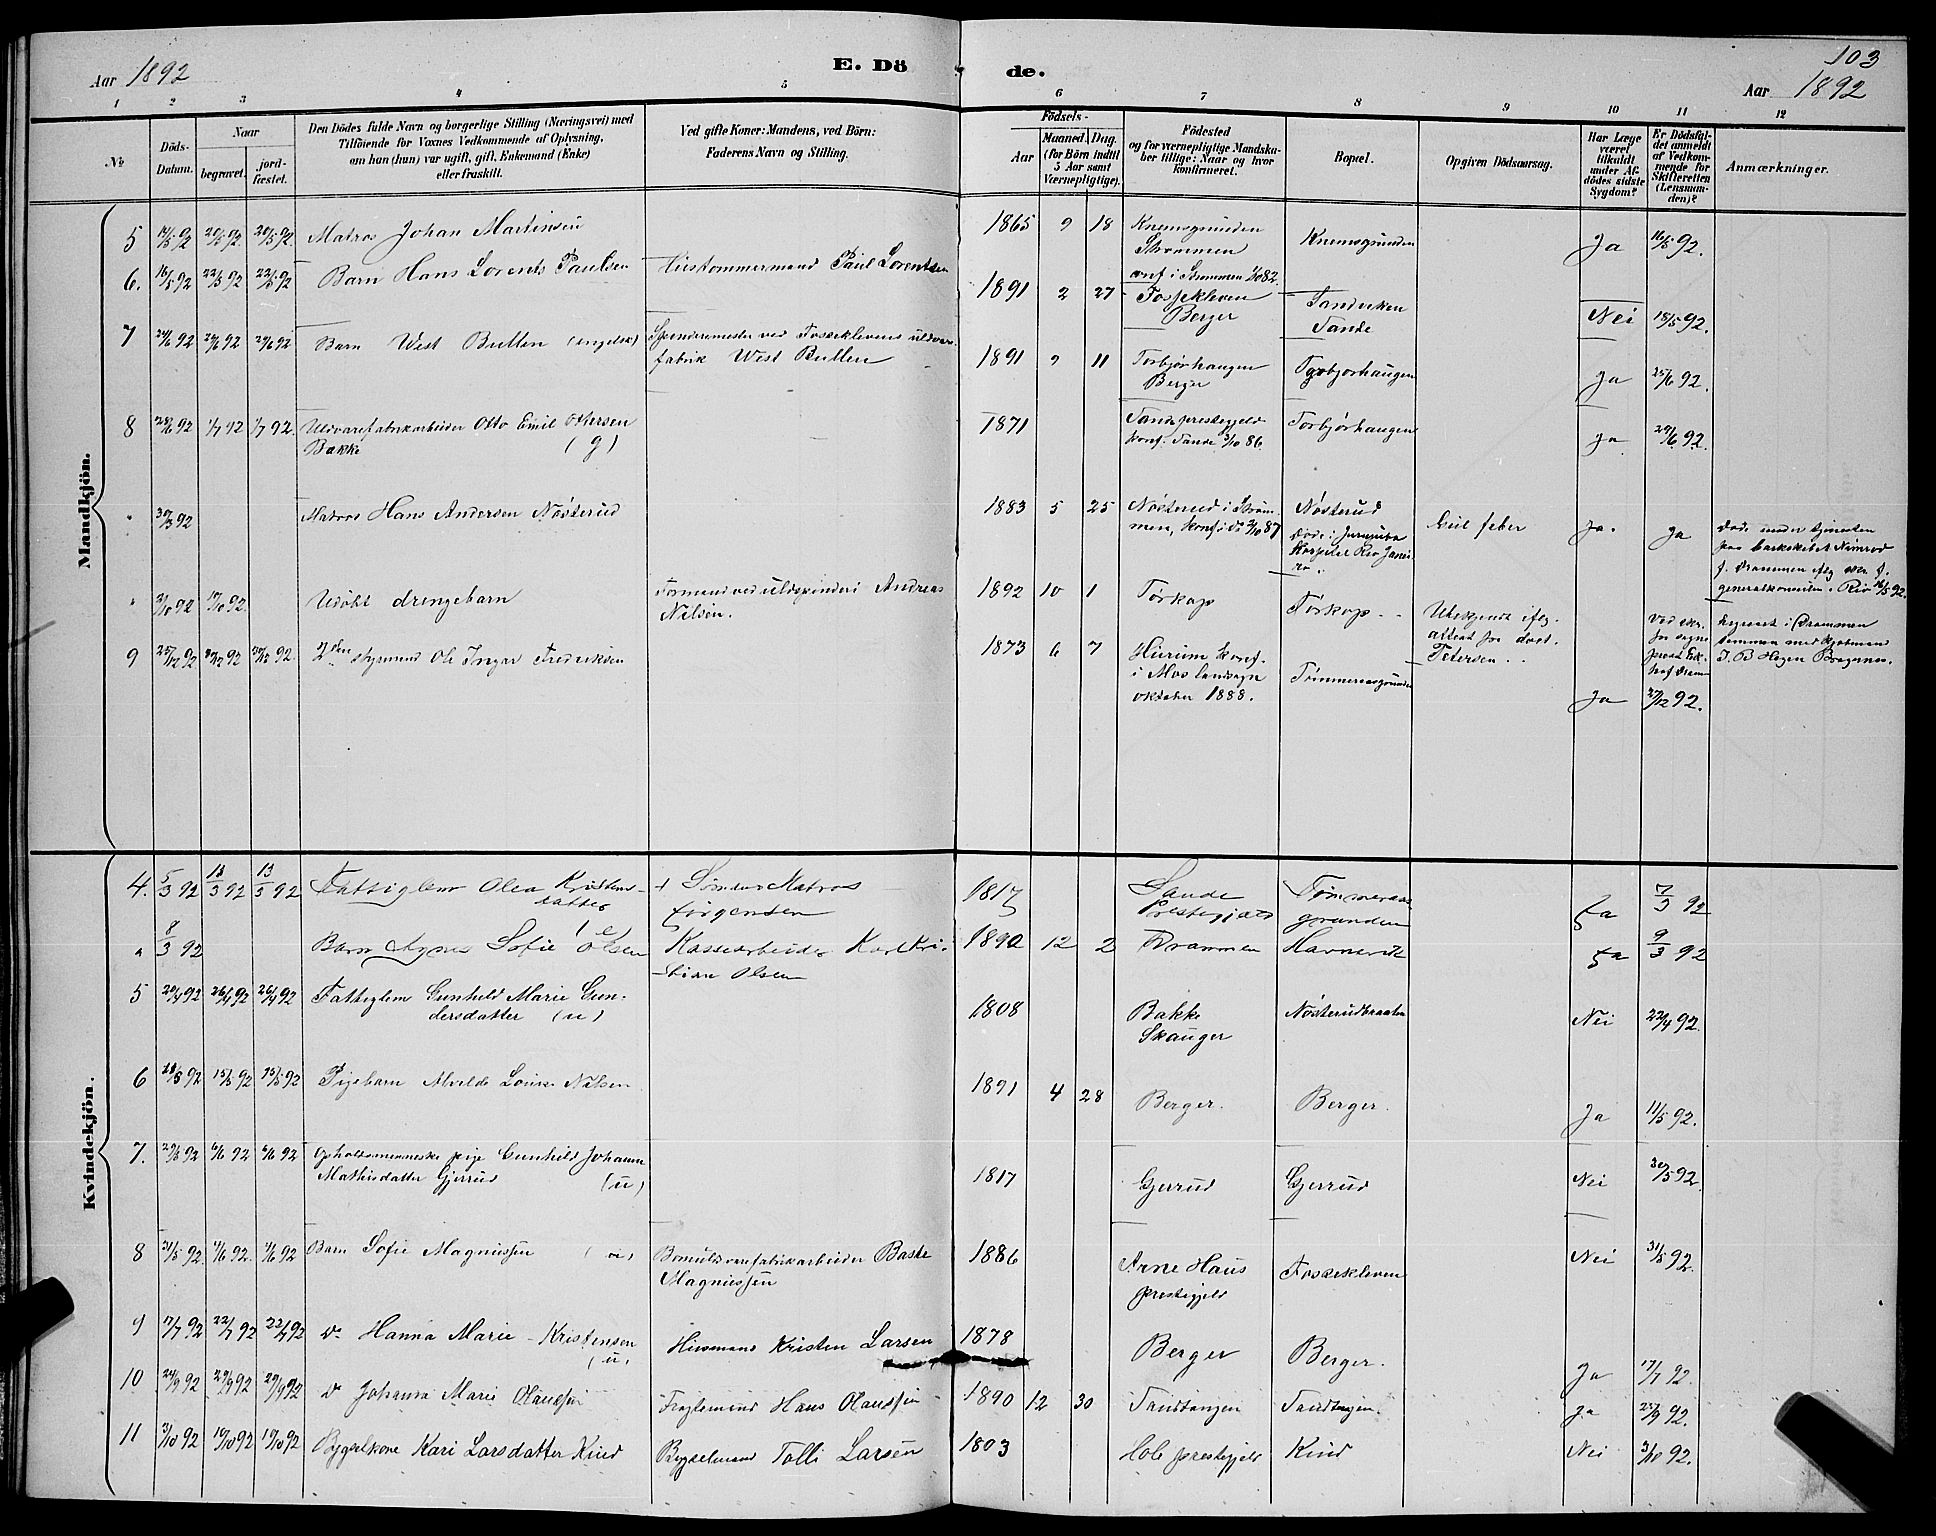 103
Aar 1892
E. Dö de.
Aar 1892
1 2 3 4 5 6 7 8 9 10 11 12
No
Döds-Datum.
Naar
begravet.
jord-fæstet.
Den Dödes fulde Navn og borgerlige Stilling (Næringsvei) med
Tilföiende for Voxnes Vedkommende af Oplysning,
om han (hun) var ugift, gift, Enkemand (Enke)
eller fraskilt.
Ved gifte Koner: Mandens, ved Börn:
Faderens Navn og Stilling.
Födsels-
Aar
Maaned. Dag.
(for Börn indtil
5 Aar samt
Værnepligtige).
Födested
og for værnepligtige Mandska-
ber tillige: Naar og hvor
konfirmeret.
Bopæl.
Opgiven Dödsaarsag.
Har Læge
været
tilkaldt
under Af-
dödes sidste
Sygdom?
Er Dödsfal-
det anmeldt
af Vedkom-
mende for
Skifteretten
(Lensman-
den)?
Anmærkninger.
Mandkjön.
5 14/5 92 20/5 92. 20/5 92. Matros Johan Martinsen 1865 9 18 Knemsgrunden
Strømmen
konf i Strømmen 82. Knemsgrunden Ja 16/5 92.
6. 16/5 92 22/5 92 22/5 92 Barn Hans Lorents Paulsen Hustømmermand Paul Lorentsen 1891 2 27 Fossekleven
Berger
Sande Nei 18/5 92.
7 24/6 92 29/6 92 29/6 92 Barn West Butten (engelsk) Spinderimester ved Fosseklevens uldvare-
fabrik West Butten 1891 9 11 Torbjørhaugen
Berger Torbjørhaugen Ja 25/6 92.
8 28/6 92 1/7 92 1/7 92. Uldvarefabrikarbeider Otto Emil Ottersen
Bakke (g) 1871 Sande prestegjeld
konf. Sande 3/10 86. Torbjørhaugen Ja 29/6 92.
" 30/3 92 Matros Hans Andersen Nøsterud 1883 5 25 Nøsterud i Strøm-
men, konf. i do 2/10 87 Nøsterud
Døde i Jurujuba
Hospital Rio Janei-
ro. Gul feber Ja. Ja Døde under tjenesten
paa barkskibet Nimrod
f. Drammen iflg. skr. f.
generalkonsulen i Rio 16/5 92.
" 3/10 92 17/10 92. Udøbt drengebarn Formand ved uldspinderi Andreas
Nilsen. 1892 10 1 Tørkop Tørkop Ubekjendt iflg.
attest fra doct.
Petersen.
9 25/12 92 30/12 92 30/12 92. 2den styrmand Ole Ingar Fredriksen 1873 6 7 Hurum konf.
i Mos landsogn
oktober 1888. Tømmeraasgrunden Ja 27/12 92.
Kvindekjön.
4. 5/3 92 13/3 92 13/3 92 Fattiglem Olea Kristens-
datter Sømand Matros
Jørgensen 1817 Sande
Prestegjæld Tømmeraas
grunden Ja 7/3 92
" 8/3 92 Barn Agnes Sofie Olsen Kassearbeider Karl Kri-
stian Olsen 1890 12 2 Drammen Havnevik Ja 9/3 92
5 20/4 92 26/4 92 26/4 92 Fattiglem Gunhild Marie Gun-
dersdatter (u) 1808 Bakke
Skauger Nøsterudbraaten Nei 22/4 92.
6 10/5 92 15/5 92 15/5 92 Pigebarn Alvilde Louise Nilsen 1891 4 28 Berger. Berger. Ja 11/5 92.
7. 29/5 92 6/6 92 6/6 92 Opholdsmenneske pige Gunhild Johanne
Mathisdatter Gjerrud (u) 1817 Gjerrud Gjerrud Nei 30/5 92.
8 31/5 92. 4/6 92. 4/6 92 Barn Sofie Magnussen (u) Bomuldsvarefabrikarbeider Baste
Magnussen 1886 Arne Haus
prestegjeld Fossekleven Nei 31/5 92.
9 17/7 92 22/7 92 22/7 92 do Hanna Marie Kristensen
(u) Husmand Kristen Larsen 1878 Berger Berger. Ja 17/7 92.
10 24/9 92 29/9 92 29/9 92 do Johanna Marie Olaussen Hans Olaussen 1890 12 30 Sandtangen Sandtangen. Ja 25/9 92.
11 3/10 92 10/10 92 10/10 92 Bygselkone Kari Larsdatter Kind Bygselmand Tolli Larsen 1803 Hole prestegjeld Kind Nei 3/10 92.